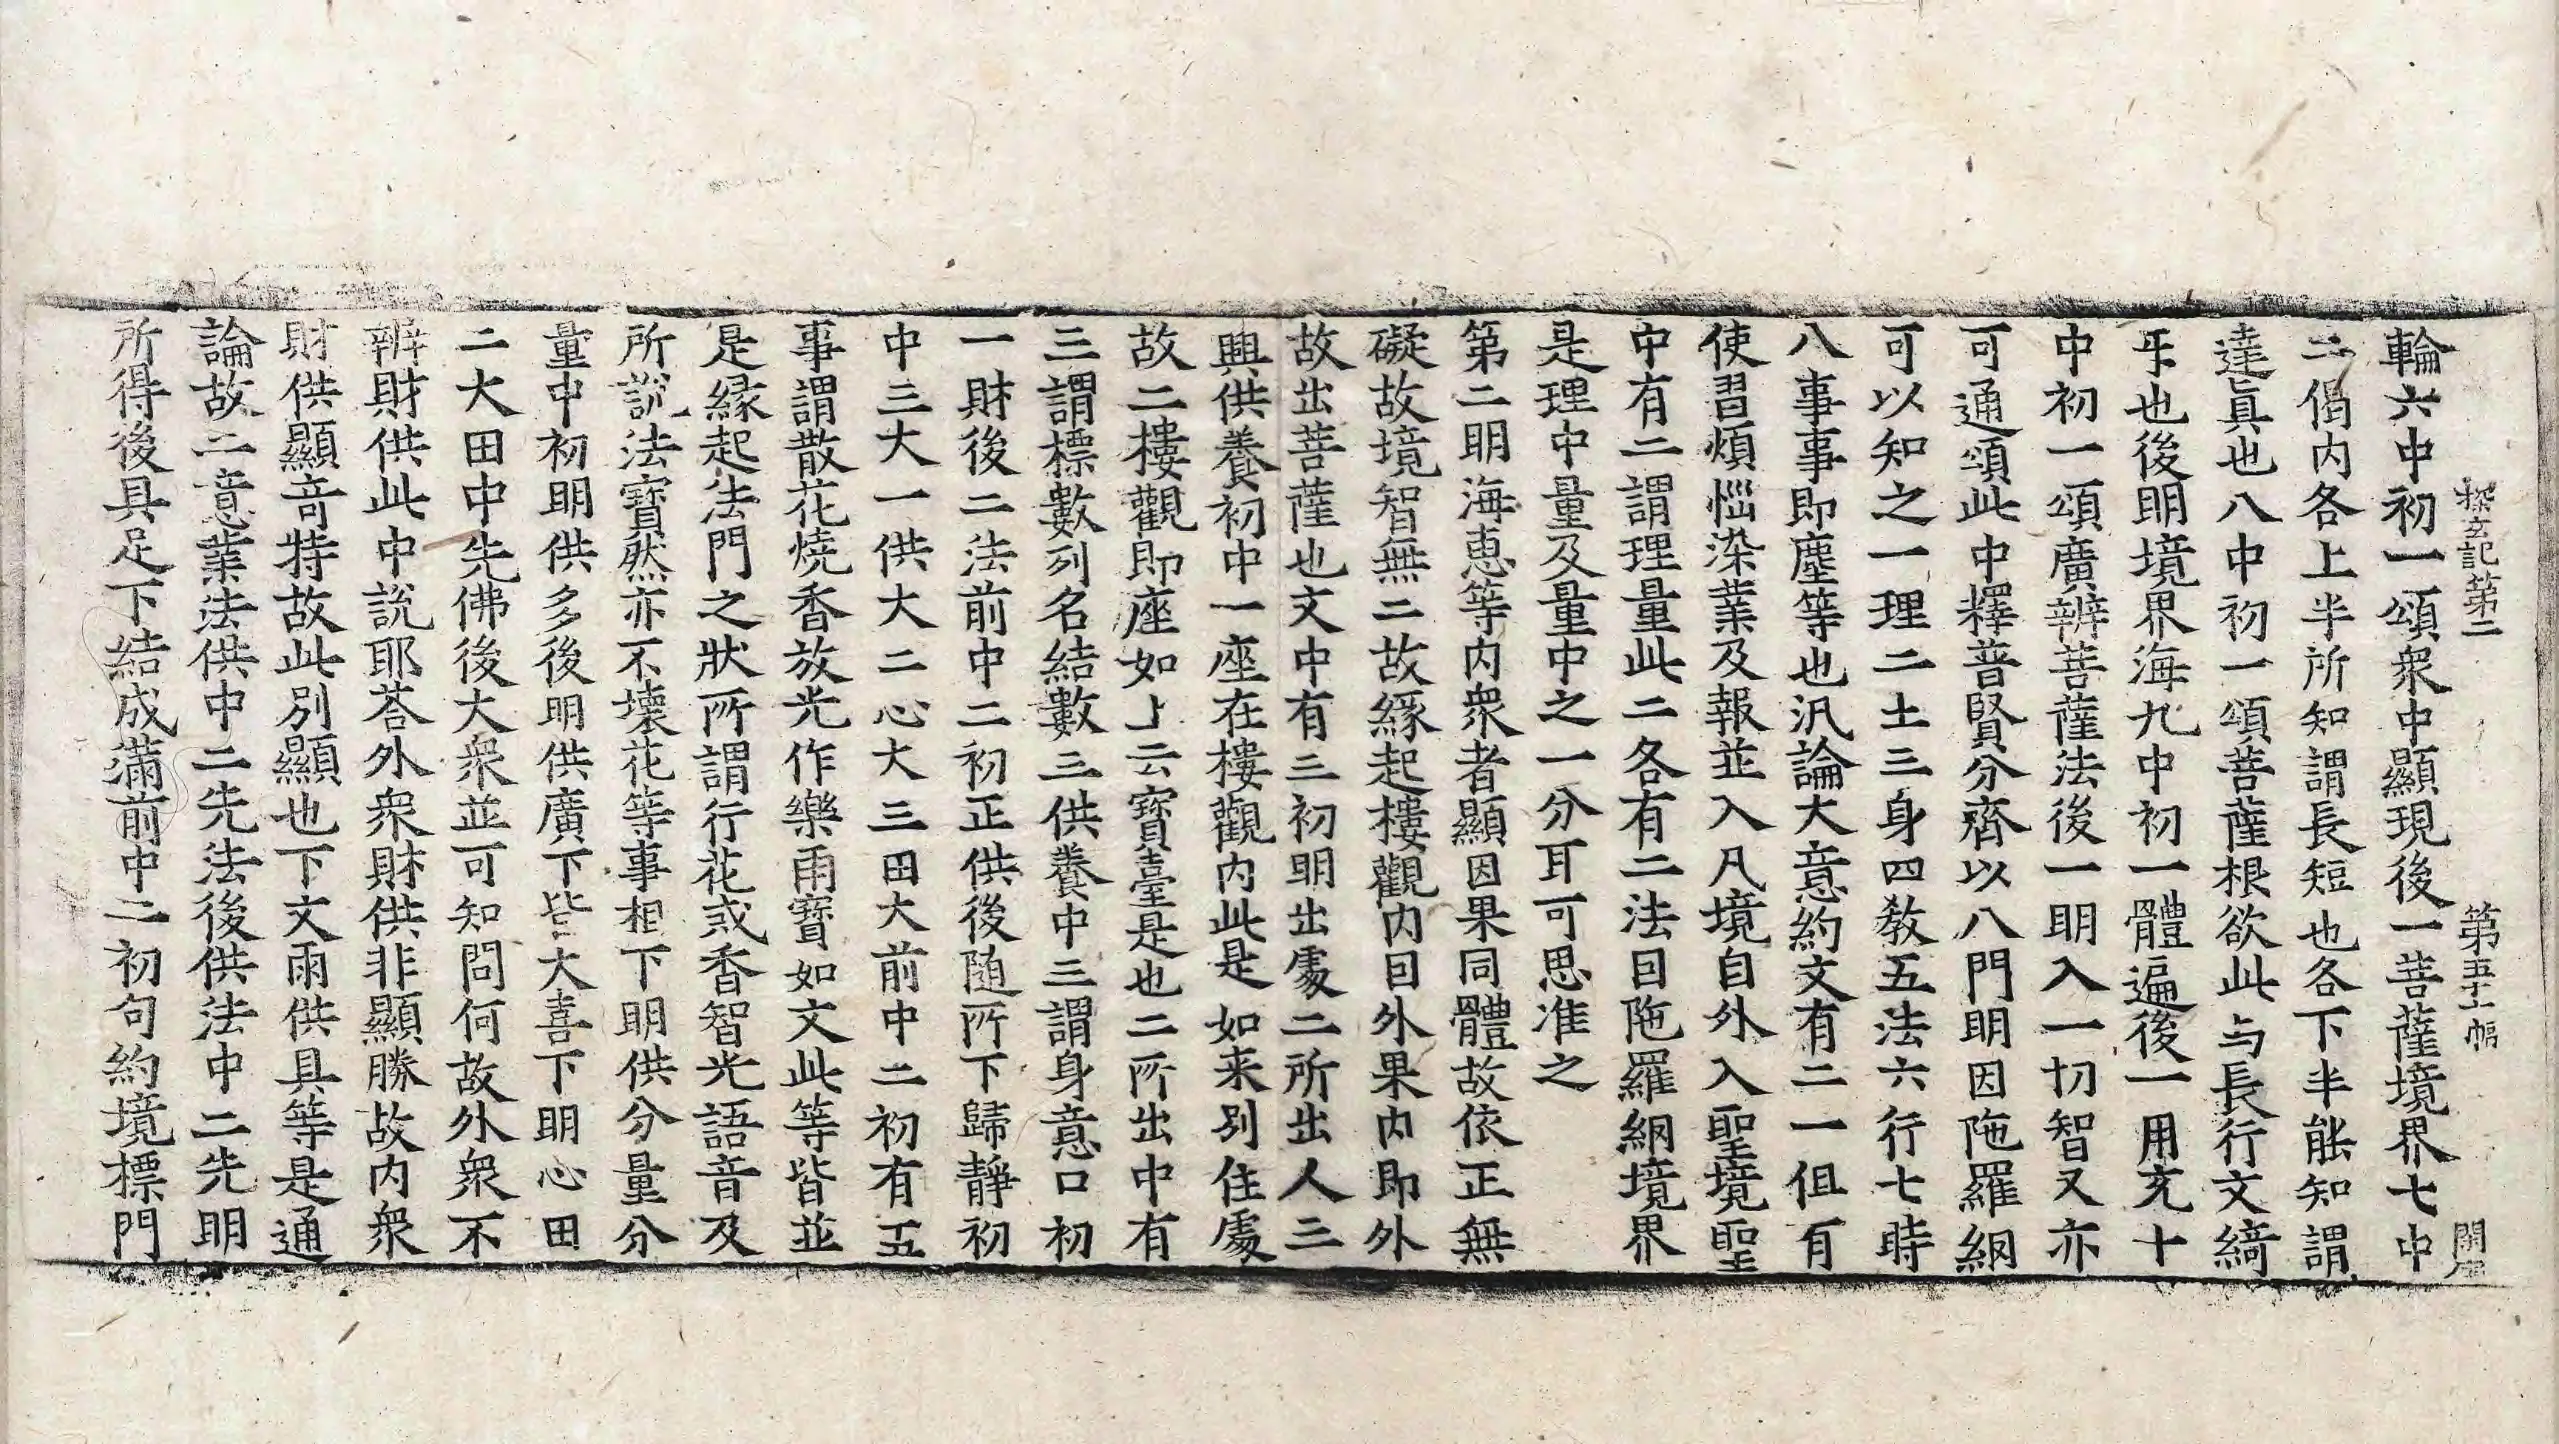 探玄記第二 第五十一幅 開
輪六中初一頌衆中顯現後一菩薩境界七中
二偈內各上半所知謂長短也各下半能知謂
達眞也八中初一頌菩薩根欲此与長行文綺
㸦也後明境界海九中初一體遍後一用充十
中初一頌廣辨菩薩法後一明入一切智又亦
可通頌此中釋普賢分齊以八門明因陁羅網
可以知之一理二土三身四教五法六行七時
八事事即塵等也汎論大意約文有二一但有
使習煩惱染業及報並入凡境自外入聖境聖
中有二謂理量此二各有二法曰陁羅網境界
是理中量及量中之一分耳可思准之
第二明海惠等內衆者顯因果同體故依正無
礙故境智無二故緣起樓觀內曰外果內即外
故出菩薩也文中有三初明出處二所出人三
興供養初中一座在樓觀內此是如来別住處
故二樓觀即座如上云寶臺是也二所出中有
三謂標數列名結數三供養中三謂身意口初
一財後二法前中二初正供後隨所下歸靜初
中三大一供大二心大三田大前中二初有五
事謂散花燒香放光作樂雨寶如文此等皆並
是緣起法門之狀所謂行花或香智光語音及
所說法寶然亦不壞花等事相下明供分量分
量中初明供多後明供廣下皆大喜下明心田
二大田中先佛後大衆並可知問何故外衆不
辨財供此中說耶荅外衆財供非顯勝故內衆
財供顯竒特故此別顯也下文雨供具等是通
論故二意業法供中二先法後供法中二先明
所得後具足下結成滿前中二初句約境標門